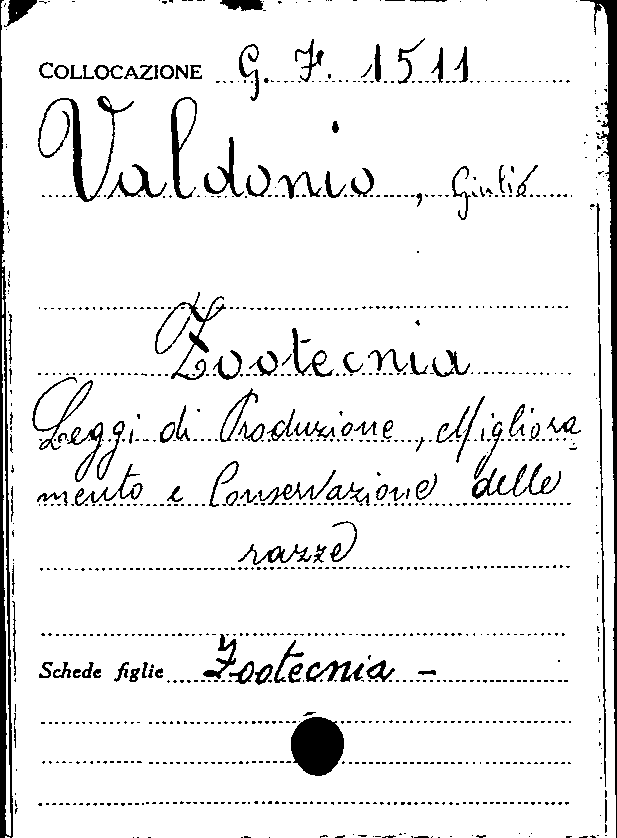 COLLOCAZIONE G. F. 1511
Valdonio, Giulio
Zootecnia
Leggi di Produzione, Migliora-
mento e Conservazione delle
razze
Schede figlie Zootecnia -